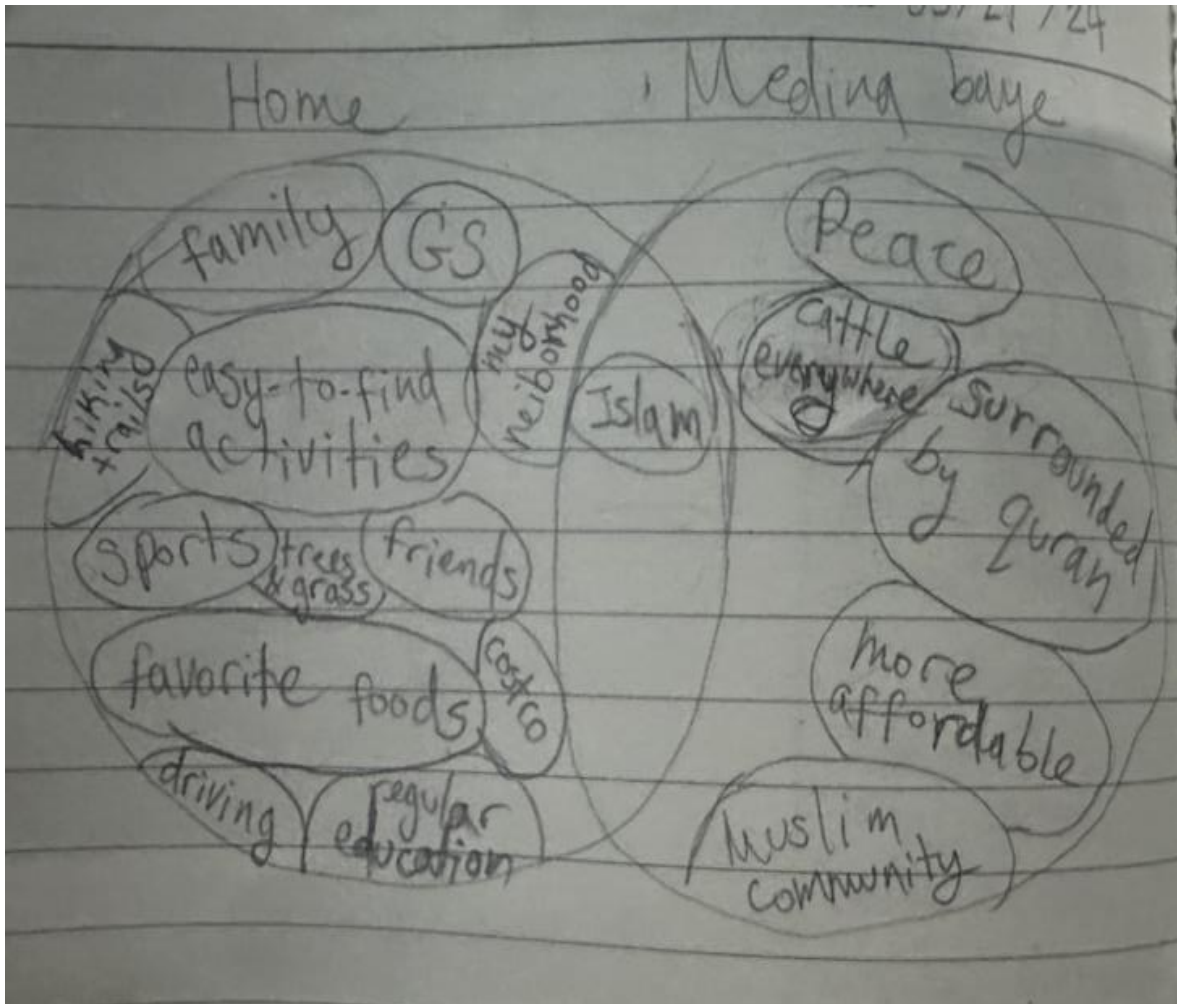 /24
Home
Medina baye
family
GS
my
neiborhood
hiking
trails
easy-to-find
activities
sports
trees
& grass
friends
favorite foods
costco
driving
regular
education
Islam
Peace
cattle
everywhere
surrounded
by quran
more
affordable
Muslim
community